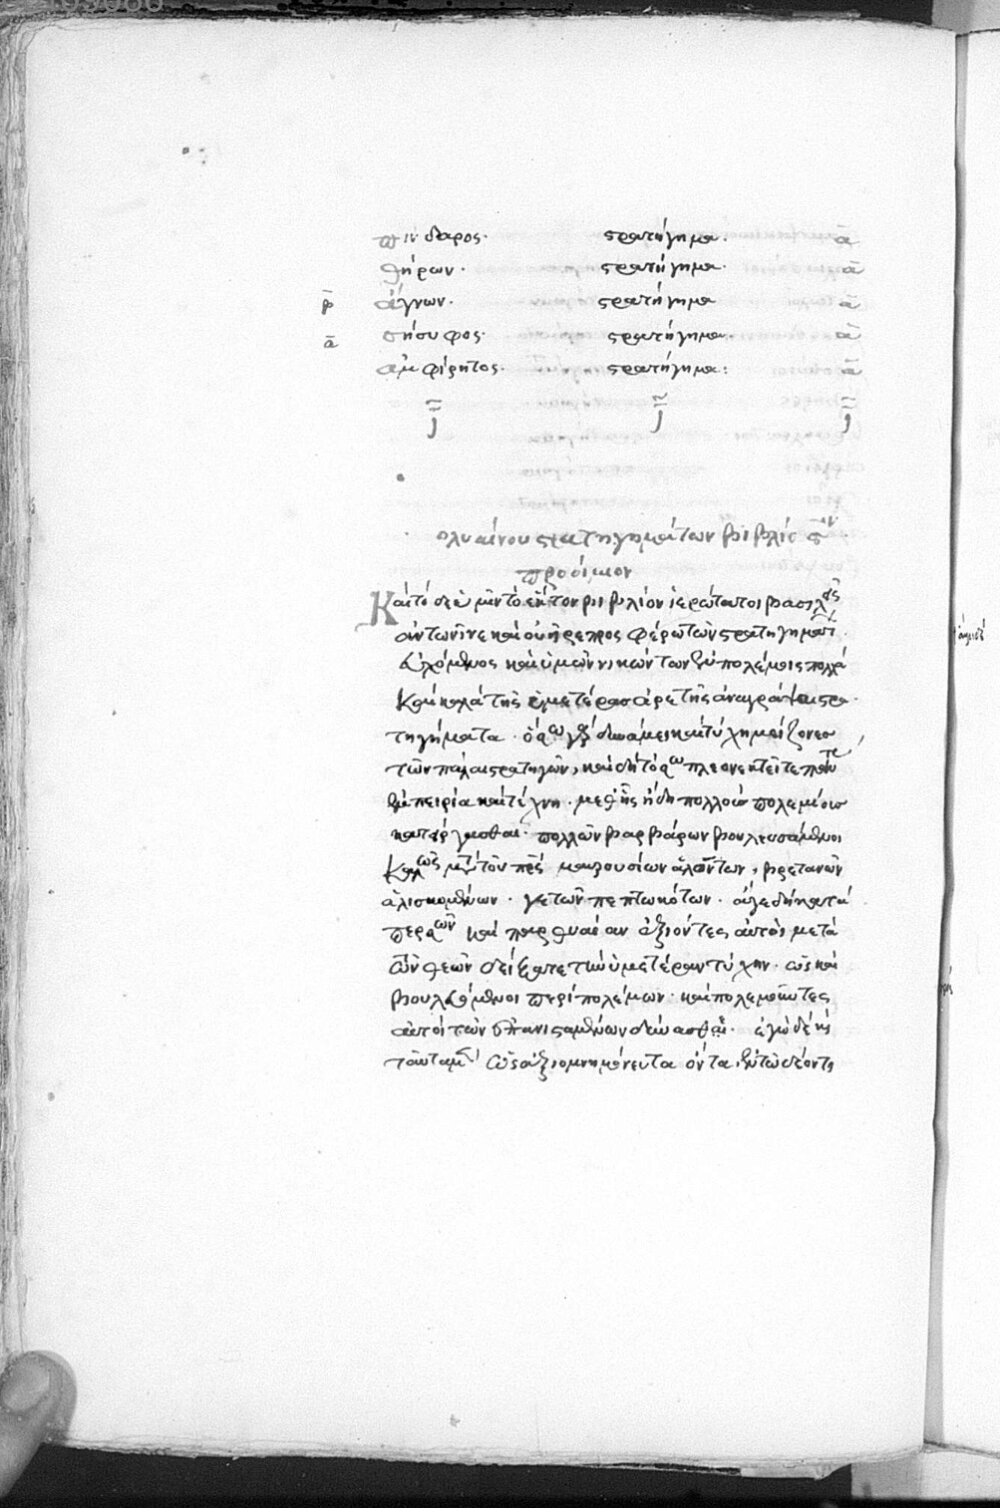 πίνδαρος· στρατήγημα· ᾱ
θήρων· στρατήγημα· ᾱ
β̄ ἅγνων· στρατήγημα ᾱ
ᾱ σήσυφος· στρατήγημα ᾱ
ἀμφίρητος· στρατήγημα: ᾱ
ολυαίνου στρατηγημάτων βιβλίον ς
προοίμιον
Καὶ τόδε ὑμῖν τὸ ἕκτον βιβλίον ἱερώτατοι βασιλεῖς
ἀντωνῖνε καὶ οὐῆρε προσφέρω τῶν στρατηγημάτων·
εὐχόμενος καὶ ὑμῶν νικώντων ἐν πολέμοις πολλὰ
καὶ καλὰ τῆς ὑμετέρας ἀρετῆς ἀναγράψαι στρα
τηγήματα· ὁρῶ γὰρ δυνάμει καὶ τύχῃ μείζονας
τῶν πάλαι στρατηγῶν, καὶ δὴ τὸ πλεονεκτεῖτε πάντων
ἐμπειρία καὶ τέχνη· μεθ' ἧς ἤδη πολλοὺς πολεμίους
κατείργασθαι· πολλῶν βαρβάρων βουλευσάμενοι
καλῶς μετὰ τοῦ πατρὸς μαυρουσίων ἁλόντων, βρετανῶν
ἁλισκομένων· γετῶν πεπτωκότων· ἄγε δὴ κατὰ
περσῶν καὶ παρθυαίων ἐξιόντες αὐτοὶ μετὰ
τῶν θεῶν δείξατε τὴν ὑμετέραν τύχην· ὡς καὶ
βουλευόμενοι περὶ πολέμων· καὶ πολεμοῦντες
αὐτοὶ τῶν ἐπανισταμένων δεύσασθαι· ἐγὼ δὲ καὶ
ταῦτα μὲν ὡς ἀξιομνημόνευτα ὄντα ἐν τῷ δέοντι